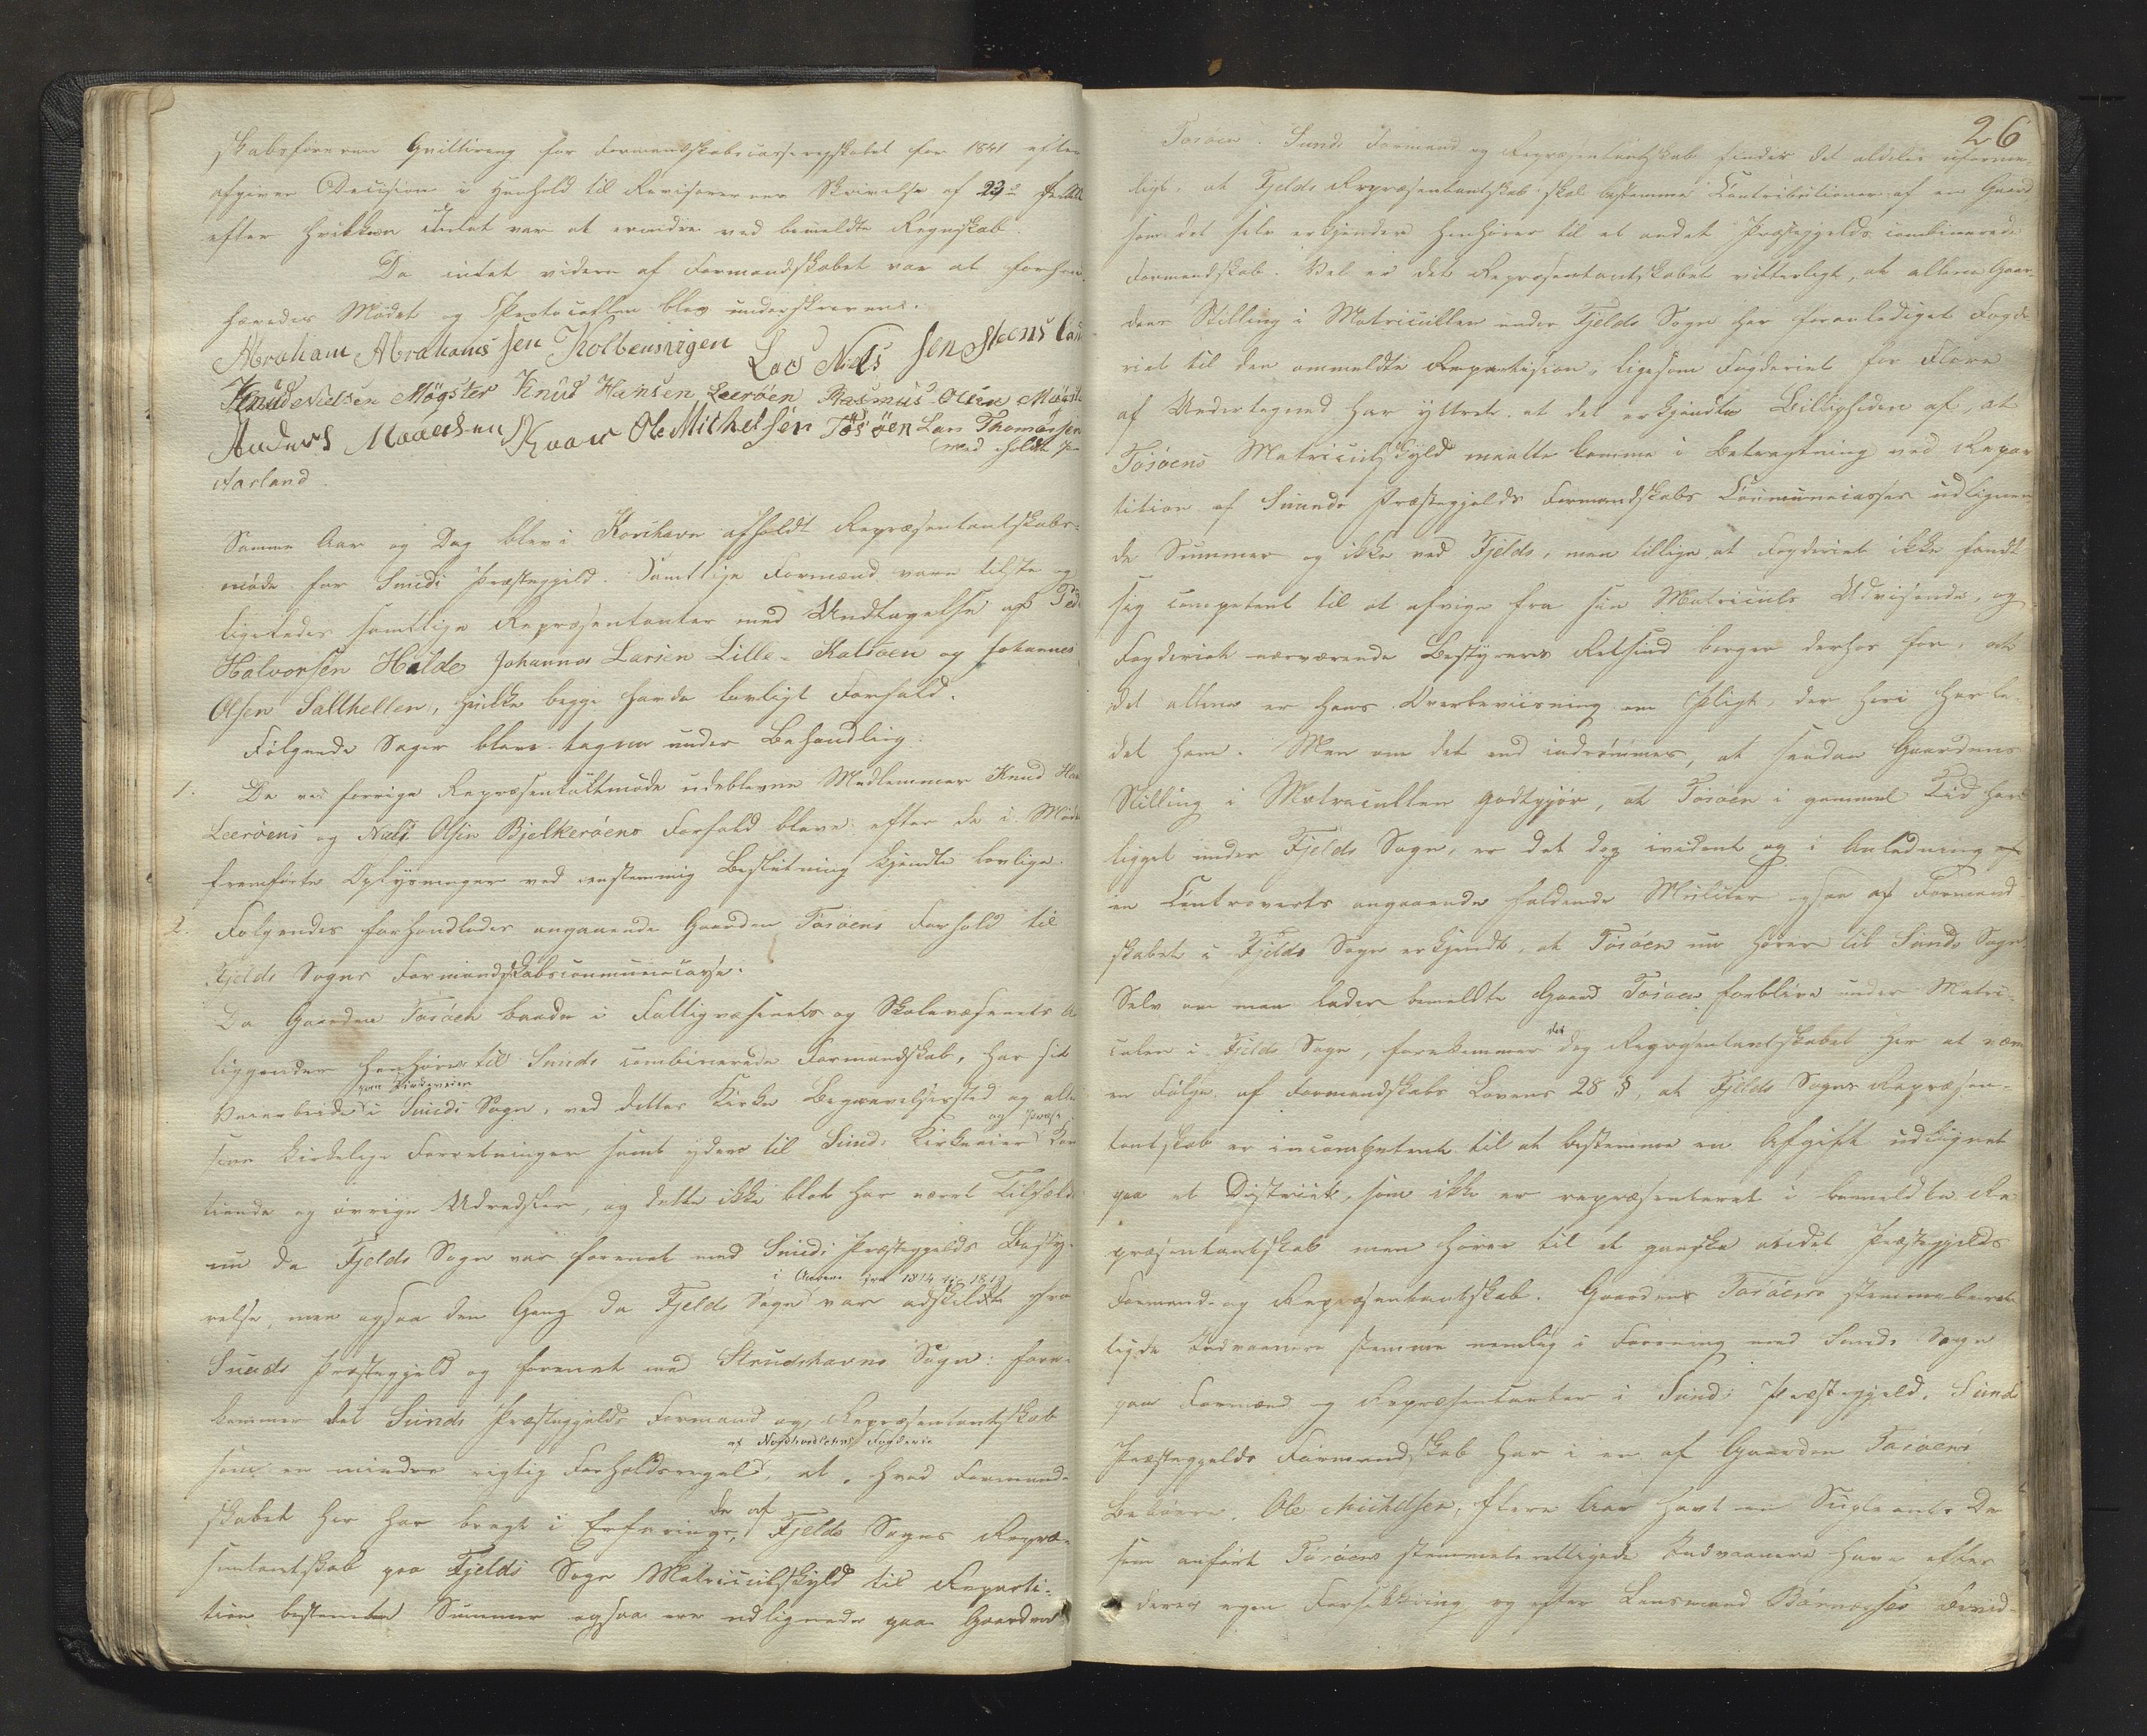 skabsføreren Qvittering for Formandskabscasseregnskabet for 1841 efter
afgiven Decision i Henhold til Revisorernes Skrivelse af 23de
efter hvilken Intet var at erindre ved bemeldte Regnskab.
Da intet videre af Formandskabet var at forhan
hævedes Mødet og Protocollen blev underskreven.
Abraham Abrahamssen Kolbensvigen Lars Niels sen Steens land
Knud Nielsen Møgster Knud Hansen Leerøen Rasmus Olsen
Anders Maaensen Kaar Ole Michelsen Tosøen Lars Thomassen
Aarland. med holdt Pen
Samme Aar og Dag blev i Korshavn afholdt Repræsentantskabs-
møde for Sunds Præstegjeld. Samtlige Formænd vare tilstede og
ligeledes samtlige Repræsentanter med Undtagelse af Ped
Halvorsen Hilde Johannes Larsen Lille-Kalsøen og Johannes
Olsen Salthellen, hvilke begge havde lovligt Forfald.
Følgende Sager bleve tagne under Behandling:
1. De ved forrige Repræsentantmøde udeblevne Medlemmer Knud Han
Leerøens og Niels Olsen Bjelkerøens Forfald bleve efter de i Møde
fremførte Oplysninger ved eenstemmig Beslutning kjendte lovlige.
2. Følgendes forhandledes angaaende Gaarden Tosøens Forhold til
Fjelds Sogns Formandskabscommunecasse.
Da Gaarden Tosøen baade i Fattigvæsenets og Skolevæsenets An
liggender henhører til Sunds combinerede Formandskab, har sit
Veiarbeide i Sunds Sogn, ved dettes Kirke Begravelsessted og alle
sine kirkelige Forretninger samt yder til Sunds Kirkeeier og Præst Kor
tiende og øvrige Udredsler, og dette ikke blot har været Tilfældet
nu da Fjelds Sogn var forenet med Sunds Præstegjelds Besty-
relse, men ogsaa den Gang da Fjelds Sogn i Aarene fra 1814 til 1819 var adskildt fra
Sunds Præstegjeld og forenet med Strudshavns Sogn: fore-
kommer det Sunds Præstegjelds Formand og Repræsentantskab
som en mindre rigtig Forholdsregel af Nordhordlehns Fogderie, at, hvad Formand-
skabet her har bragt i Erfaring, de af Fjelds Sogns Repræ-
sentantskab paa Fjelds Sogns Matriculskyld til Reparti-
tion bestemte Summer ogsaa ere udlignede paa Gaarden
26
Tosøen. Sunds Formand og Repræsentantskab finder det aldeles uforme-
ligt, at Fjelds Repræsentantskab skal bestemme Contributioner af en Gaard
som det selv erkjender henhører til et andet Præstegjelds combinerede
Formandskab. Vel er det Repræsentantskabet vitterligt, at allene Gaar-
dens Stilling i Matriculen under Fjelds Sogn har foranlediget Fogde
riet til den ommeldte Repartision, ligesom Fogderiet for Flere
af Undertegnede har yttret at det erkjendte Billigheden af, at
Tosøens Matriculskyld maatte komme i Betragtning ved Repar
tition af Sunds Præstegjelds Formandskabs Communecasses udlignen
de Summer og ikke ved Fjelds, men tillige at Fogderiet ikke fandt
sig competent til at afvige fra sin Matriculs Udvisende, og
Fogderiets nærværende Bestyrers Retsind borger derhos for, at
det allene er hans Overbeviisning om Pligt, der heri har le-
det ham. Men om det end indrømmes, at saadan Gaardens
Stilling i Matriculen godtgjør, at Tosøen i gammel Tid har
ligget under Fjelds Sogn, er det dog evident og i Anledning af
en Controverts angaaende holdende Militær ogsaa af Formand-
skabet i Fjelds Sogn erkjendt, at Tosøen nu hører til Sunds Sogn
Selv om man lader bemeldte Gaard Tosøen forblive under Matri-
culen i Fjelds Sogn, forekommer det dog Repræsentantskabet her at være
en Følge af Formandskabs Lovens 28 §, at Fjelds Sogns Repræsen-
tantskab er incompetent til at bestemme en Afgift udlignet
paa et District, som ikke er repræsenteret i bemeldte Re
præsentantskab men hører til et ganske andet Præstegjelds
Formands- og Repræsentantskab. Gaarden Tosøens stemmeberet
tigede Indvaanere stemme nemlig i Forening med Sunds Sogn
paa Formænd og Repræsentanter i Sunds Præstegjeld. Sunds
Præstegjelds Formandskab har i en af Gaarden Tosøens
Beboere, Ole Michelsen, flere Aar havt en Supleant. De
som anført Tosøens stemmeberettigede Indvaanere have efter
deres egen Forsikkring og efter Lensmand Børnæsses Bevid-